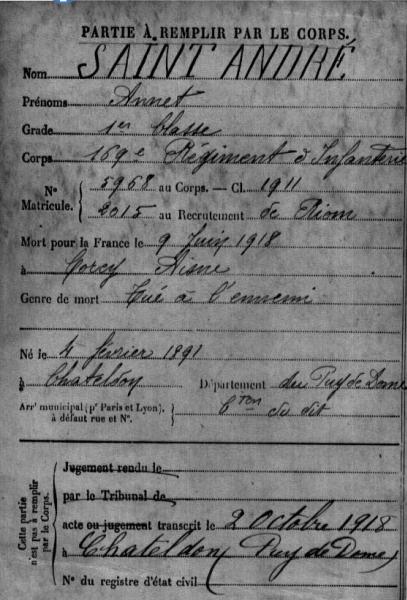 PARTIE À REMPLIR PAR LE CORPS.
Nom SAINT ANDRÉ
Prénoms Annet
Grade 1er Classe
Corps 169e Régiment d'Infanterie
N° Matricule. { 5968 au Corps. — Cl. 1911
2015 au Recrutement de Riom
Mort pour la France le 9 Juin 1918
à Corcy Aisne
Genre de mort Tué à l'ennemi
Né le 4 février 1891
à Chateldon Département du Puy de Dome
Arrt municipal (pr Paris et Lyon), à défaut rue et N°. } Cton du dit
Cette partie n'est pas à remplir par le Corps.
Jugement rendu le
par le Tribunal de
acte ou jugement transcrit le 2 Octobre 1918
à Chateldon (Puy de Dome)
N° du registre d'état civil